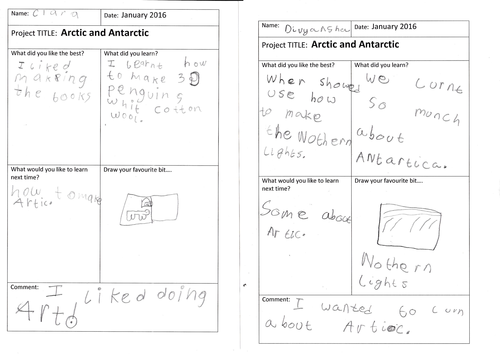 Name: Clara
Date: January 2016
Project TITLE: Arctic and Antarctic
What did you like the best?
I liked
making
the books
What did you learn?
I learnt how
to make 3D
penguins
whit cotton
wool.
What would you like to learn
next time?
how to make
Artic.
Draw your favourite bit....
Comment: I liked doing
Art!
Name: Divyansha
Date: January 2016
Project TITLE: Arctic and Antarctic
What did you like the best?
When showed
use how
to make
the Nothern
Lights.
What did you learn?
We lurnt
so munch
about
Antartica.
What would you like to learn
next time?
Some about
Artic.
Draw your favourite bit....
Nothern
Lights
Comment: I wanted to lurn
about Artioc.